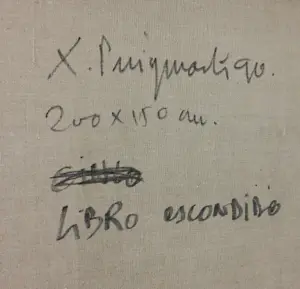 X. Puigmartí go.
200 x 150 cm.
LIBRO ESCONDIDO